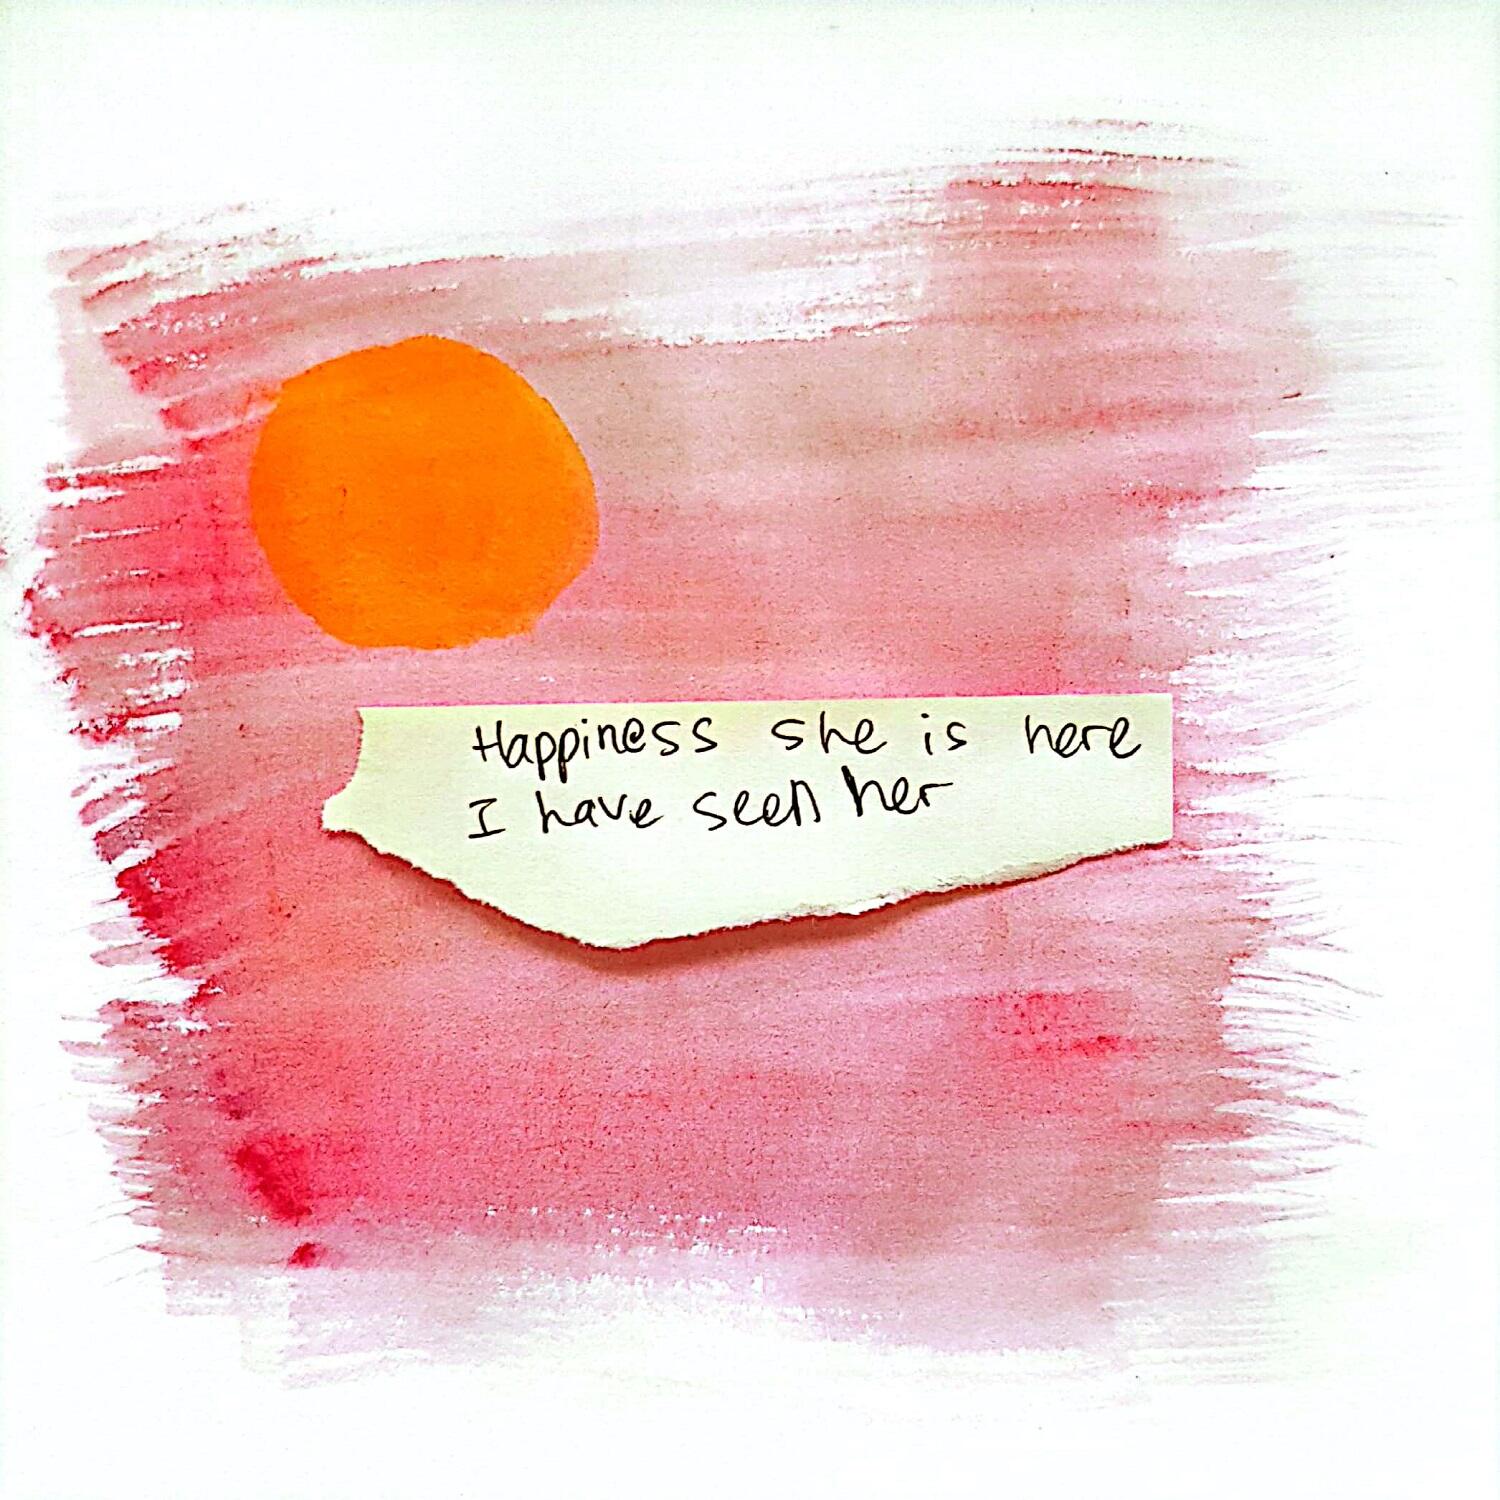 Happiness she is here
I have seen her